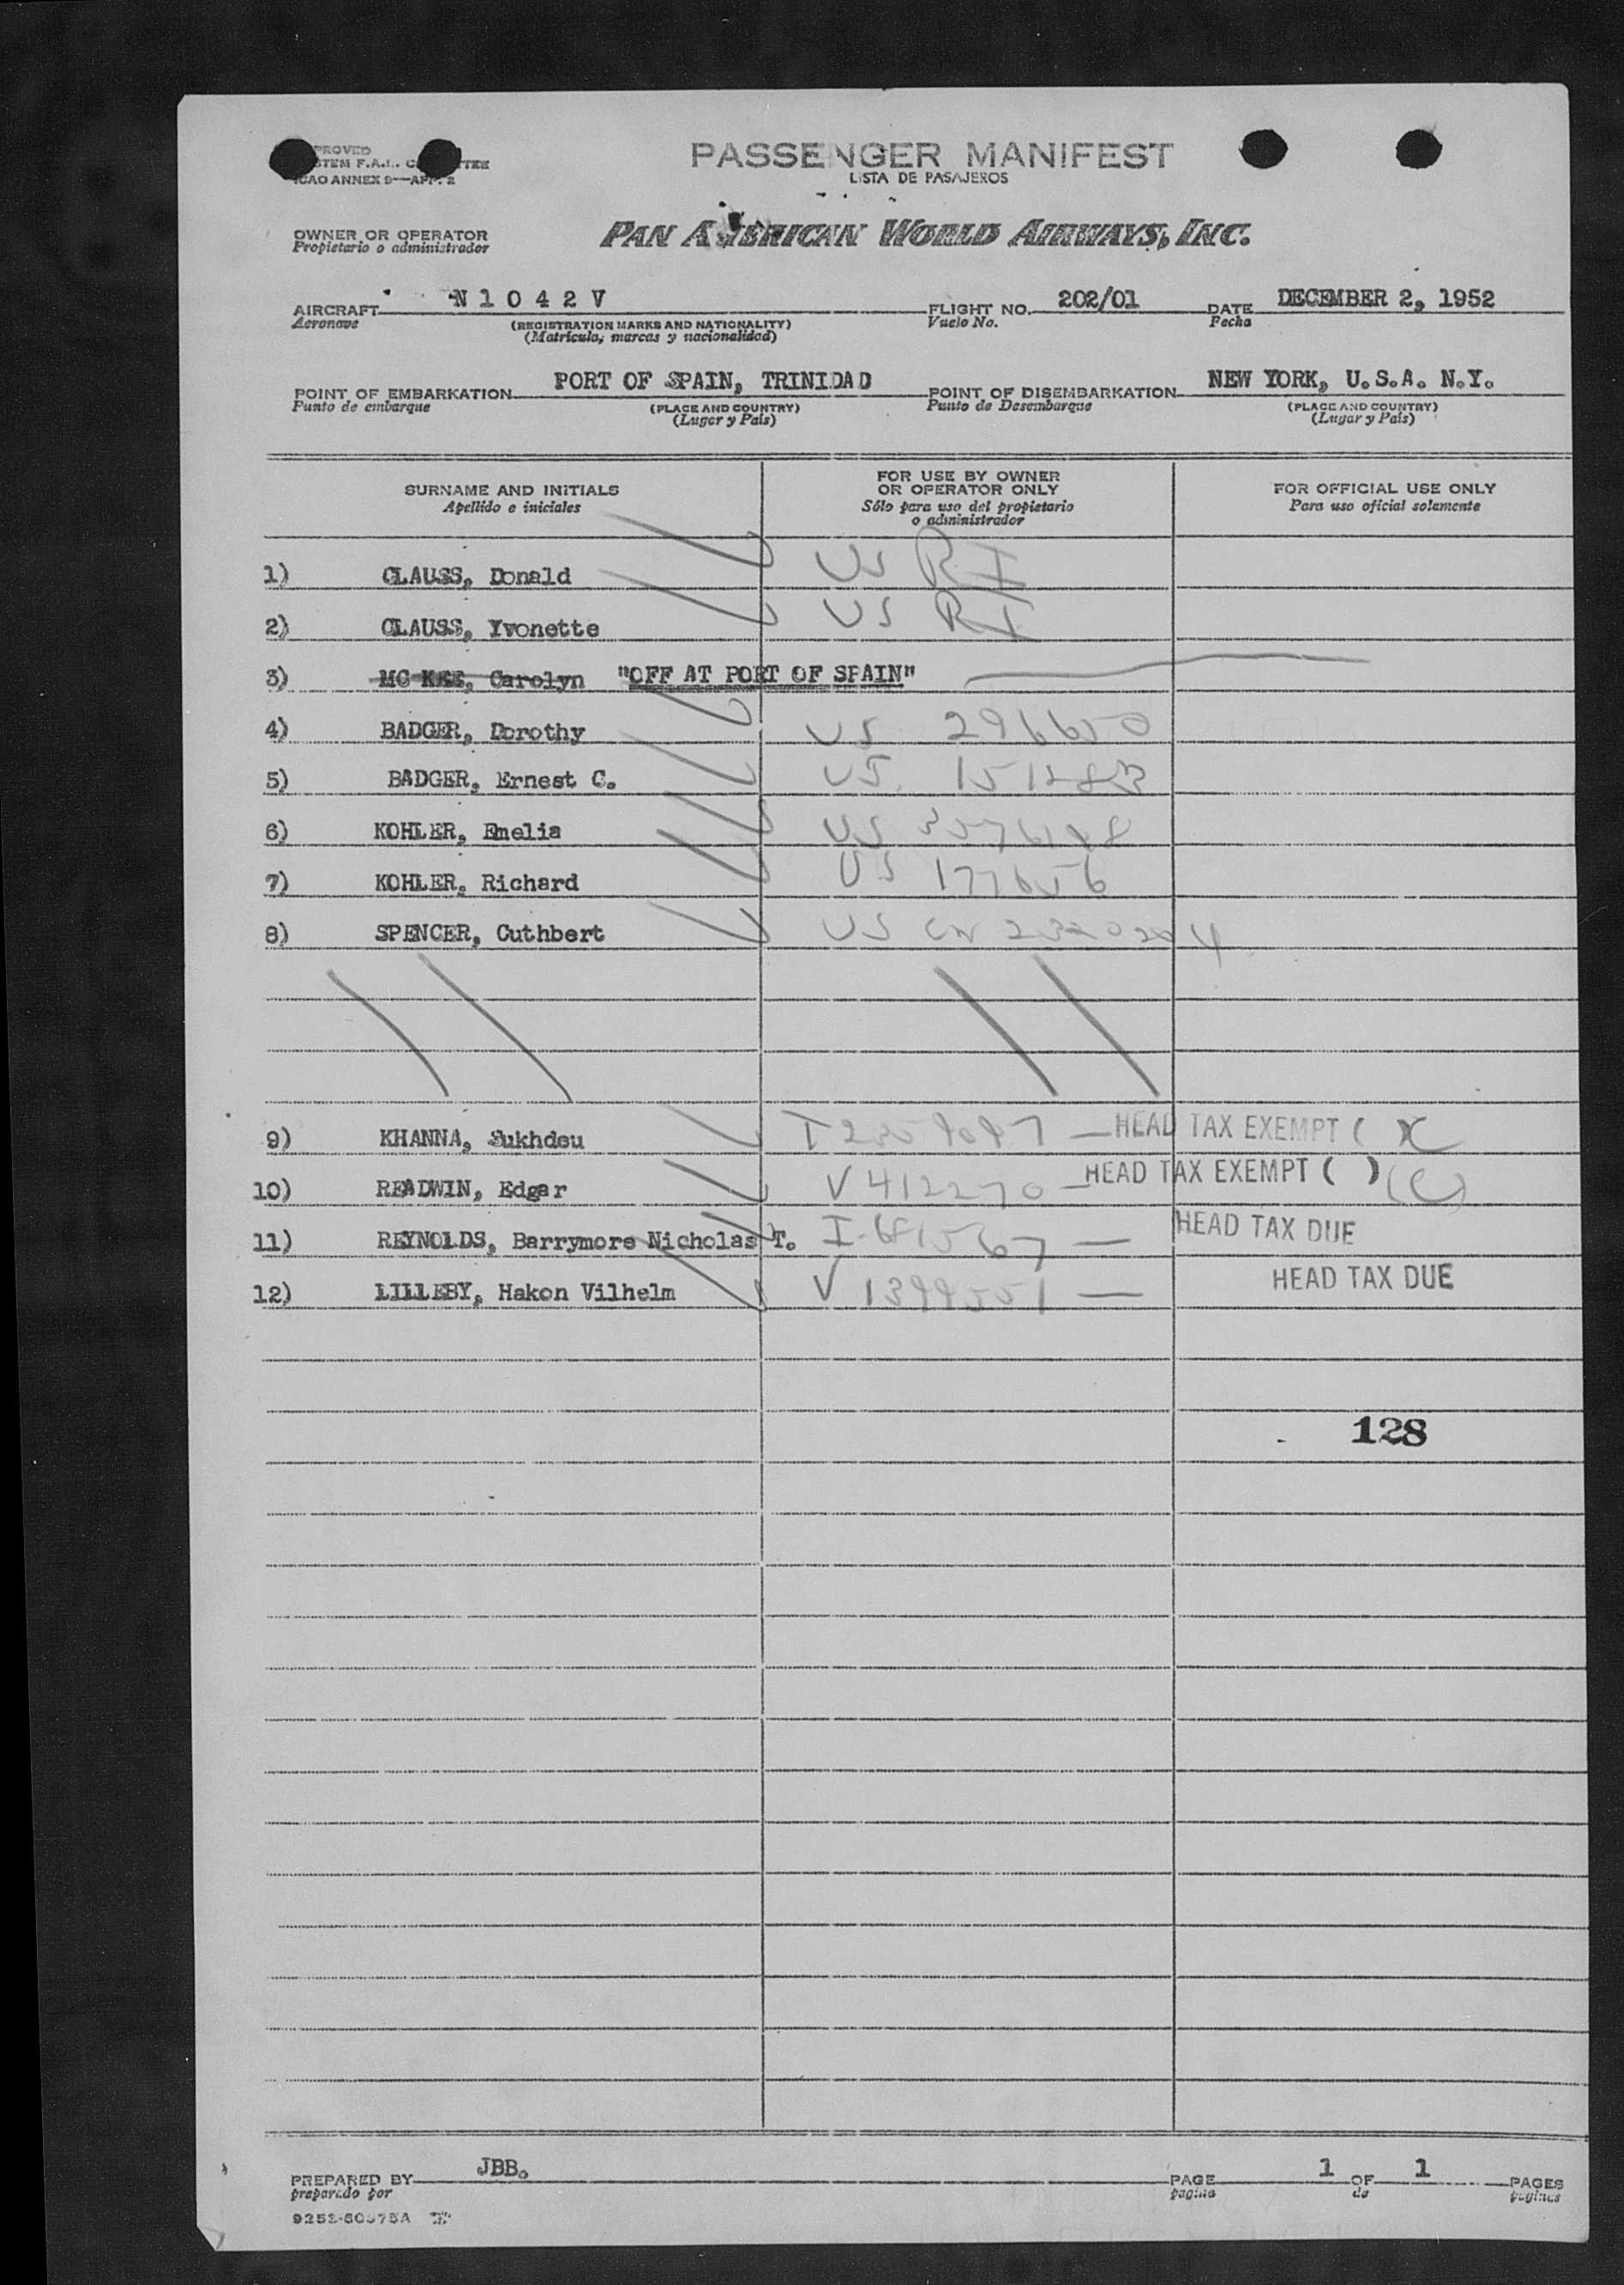 PASSENGER MANIFEST
LISTA DE PASAJEROS
ICAO ANNEX 9—APP. 2
OWNER OR OPERATOR
Propietario o administrador
PAN AMERICAN WORLD AIRWAYS, INC.
AIRCRAFT N 1 0 4 2 V FLIGHT NO. 202/01 DATE DECEMBER 2, 1952
Aeronave (REGISTRATION MARKS AND NATIONALITY) Vuelo No. Fecha
(Matrícula, marcas y nacionalidad)
POINT OF EMBARKATION PORT OF SPAIN, TRINIDAD POINT OF DISEMBARKATION NEW YORK, U.S.A. N.Y.
Punto de embarque (PLACE AND COUNTRY) Punto de Desembarque (PLACE AND COUNTRY)
(Lugar y País) (Lugar y País)
SURNAME AND INITIALS
Apellido e iniciales
FOR USE BY OWNER
OR OPERATOR ONLY
Sólo para uso del propietario
o administrador
FOR OFFICIAL USE ONLY
Para uso oficial solamente
1) CLAUSS, Donald US RI
2) CLAUSS, Yvonette US RI
3) MC KEE, Carolyn "OFF AT PORT OF SPAIN"
4) BADGER, Dorothy US 296650
5) BADGER, Ernest C. US
6) KOHLER, Emelia US
7) KOHLER, Richard US 177656
8) SPENCER, Cuthbert US CN
9) KHANNA, Sukhdeu HEAD TAX EXEMPT ( X
10) READWIN, Edgar V 412270 — HEAD TAX EXEMPT ( ) (C)
11) REYNOLDS, Barrymore Nicholas T. HEAD TAX DUE
12) LILLEBY, Hakon Vilhelm V 1399551 — HEAD TAX DUE
128
PREPARED BY JBB. PAGE 1 OF 1 PAGES
preparado por pagina de paginas